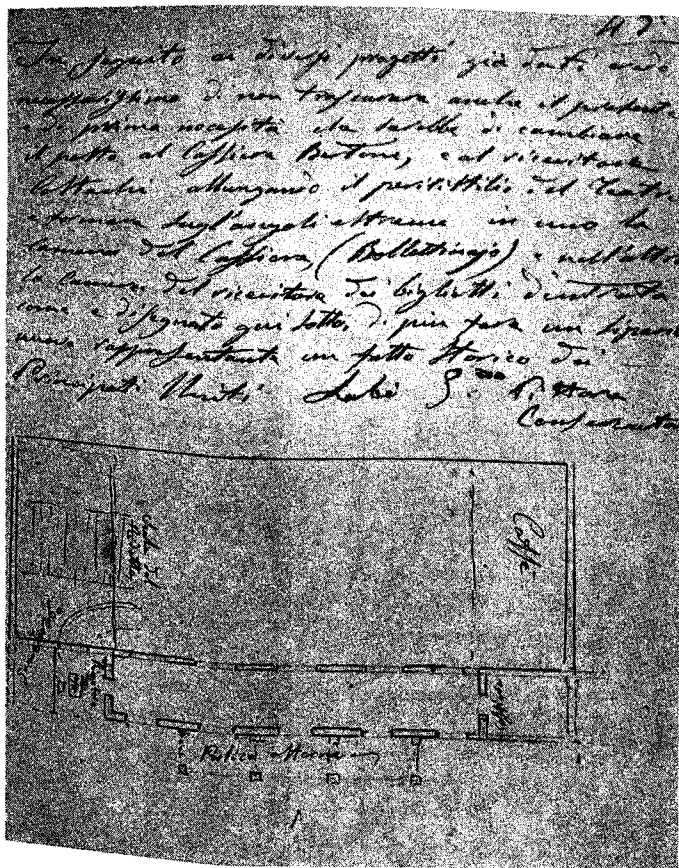 47
In seguito ai diversi progetti già dati credo
di non trascurare anche il presente
e di prima necessità che sarebbe di cambiare
il posto al Cassiere Bertoni, e al ricevitore
allungando il peristilio del Teatro
e formare sugl'angoli estremi in uno la
camera del Cassiere, (Bollettinajo) e nell'altro
la camera del ricevitore dei biglietti d'entrata
come è disegnato qui sotto, di più fare un sipario
nuovo rappresentante un fatto Storico dei
Principati Uniti Pittore
Conservatore
Caffè